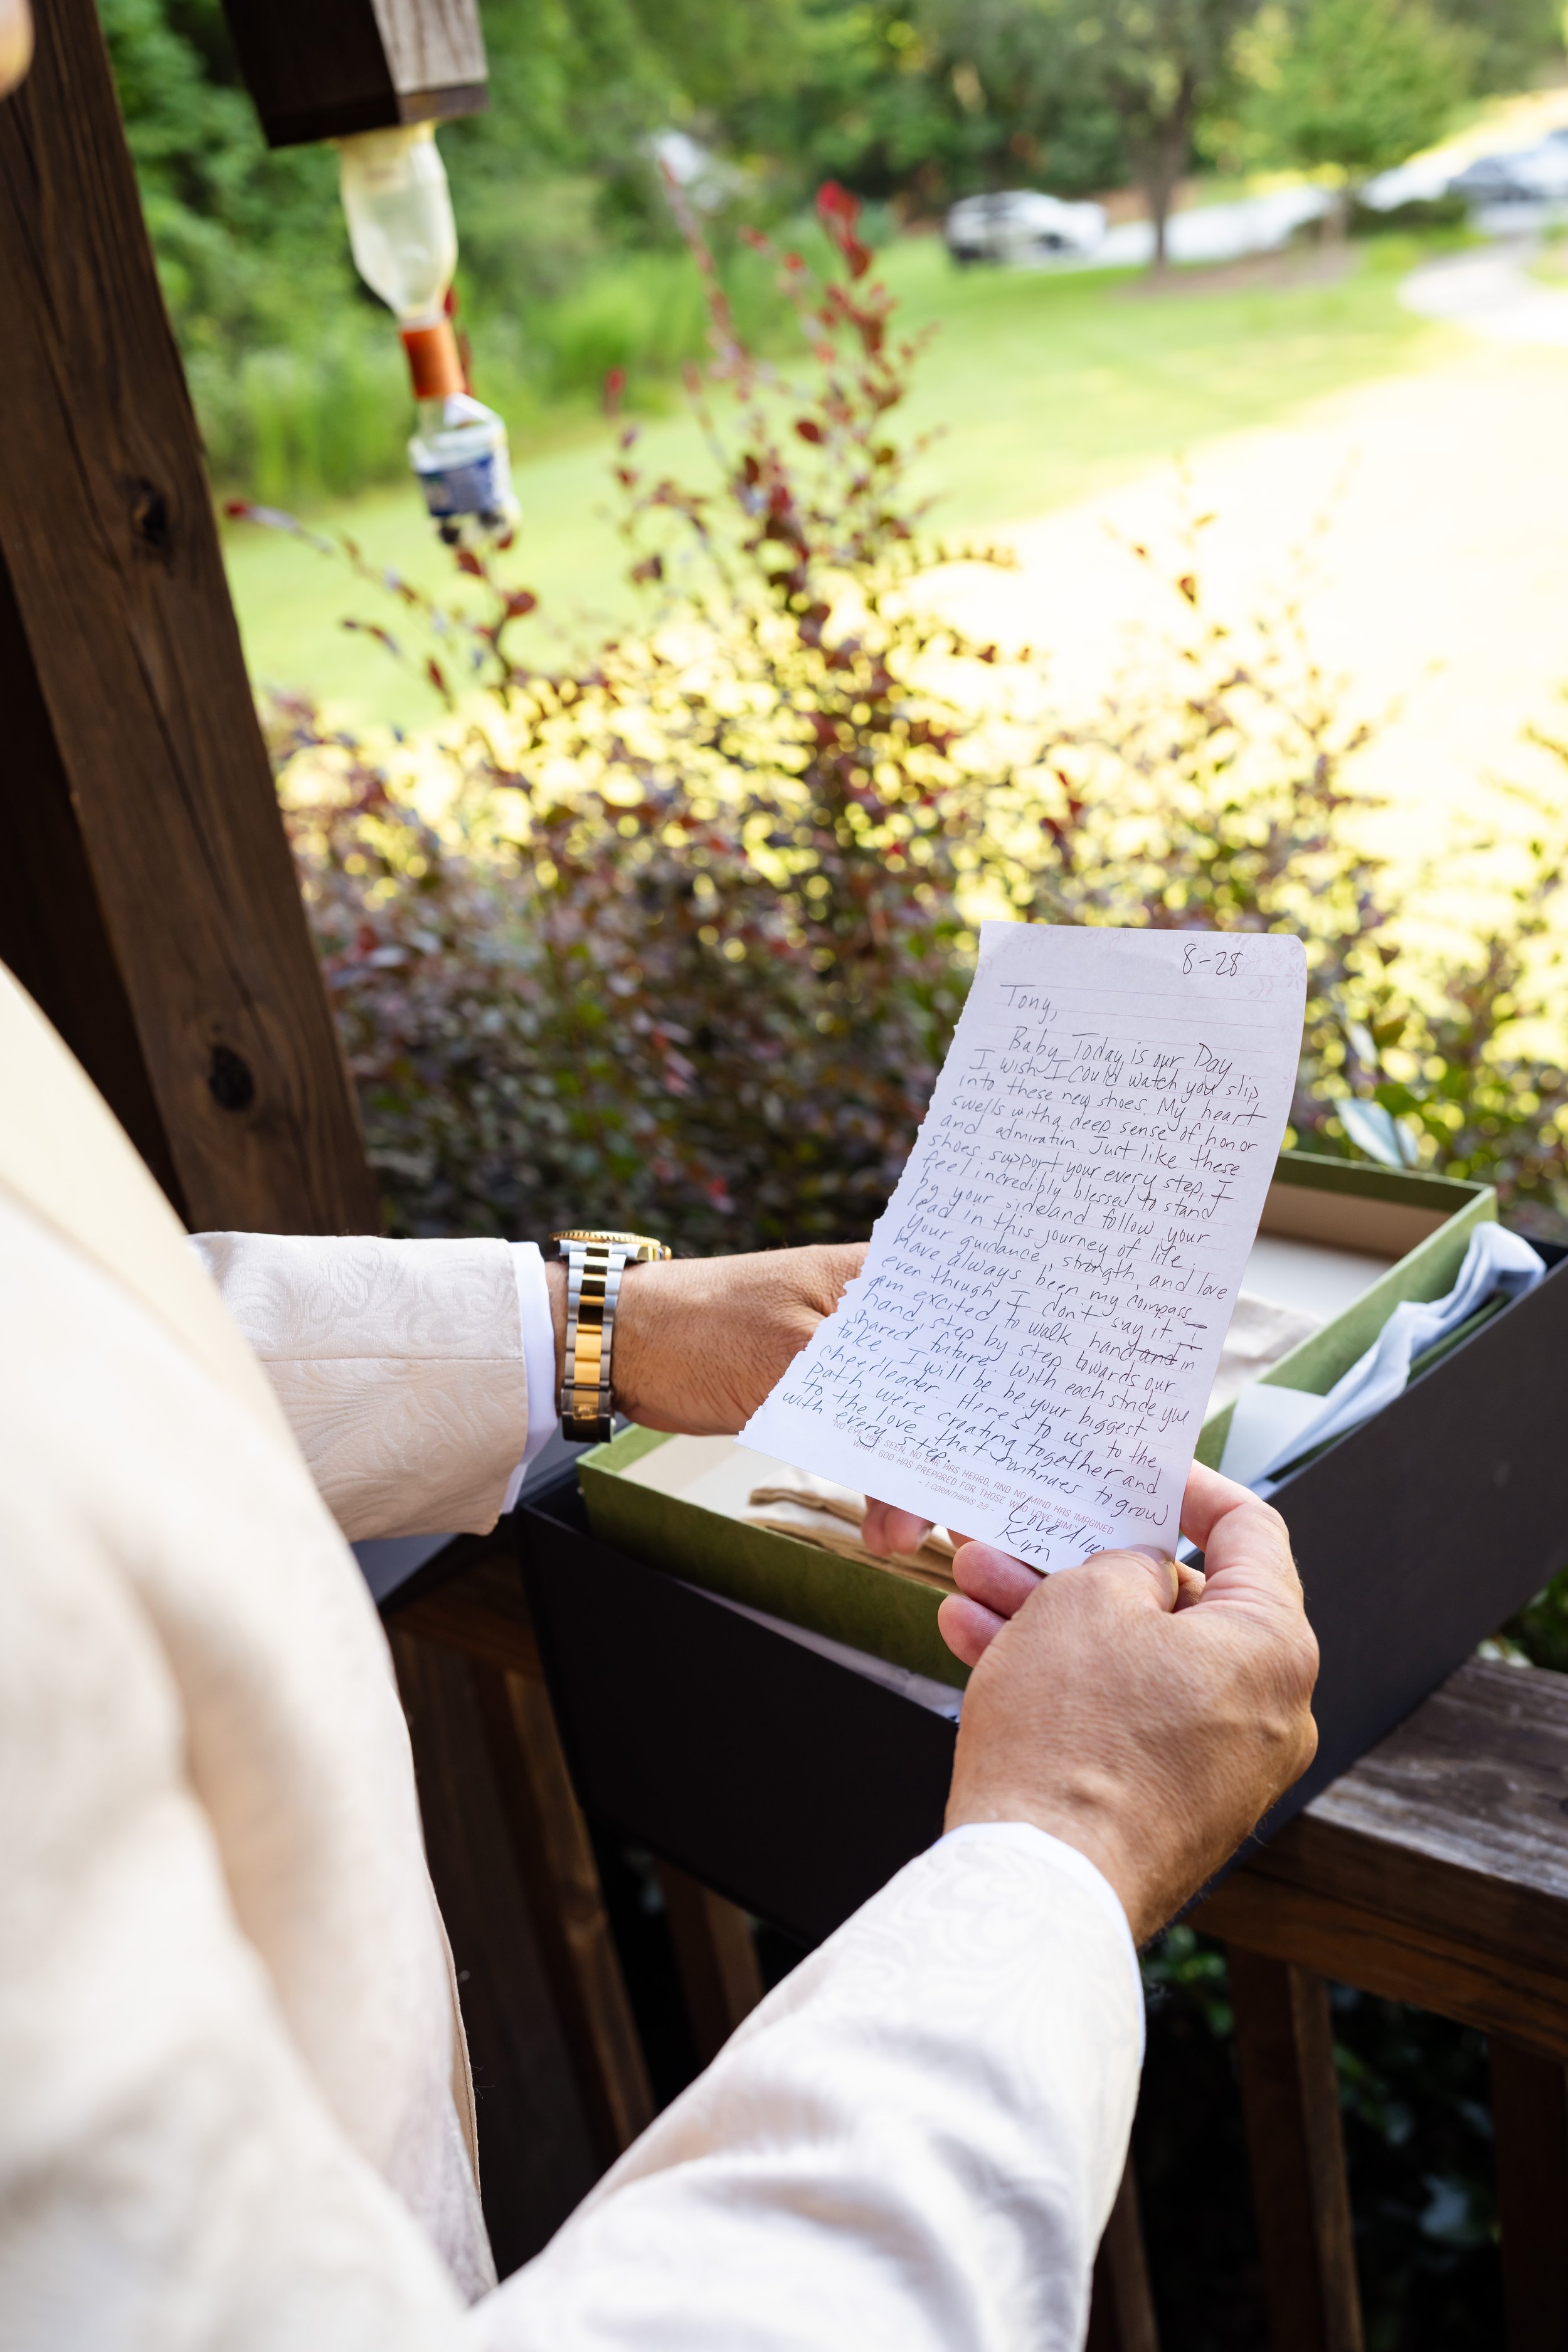 8-28
Tony,
Baby Today is our Day
I wish I could watch you slip
into these new shoes. My heart
swells with a deep sense of honor
and admiration. Just like these
shoes support your every step, I
feel incredibly blessed to stand
by your side and follow your
lead in this journey of life.
Your guidance, strength, and love
have always been my compass
even though I don't say it. I
am excited to walk hand and in
hand, step by step towards our
shared future. With each stride you
take I will be be your biggest
cheerleader. Here's to us, to the
path we're creating together and
to the love that continues to grow
with every step.
"NO EYE HAS SEEN, NO EAR HAS HEARD, AND NO MIND HAS IMAGINED
WHAT GOD HAS PREPARED FOR THOSE WHO LOVE HIM."
- 1 CORINTHIANS 2:9 -
Love
Kim